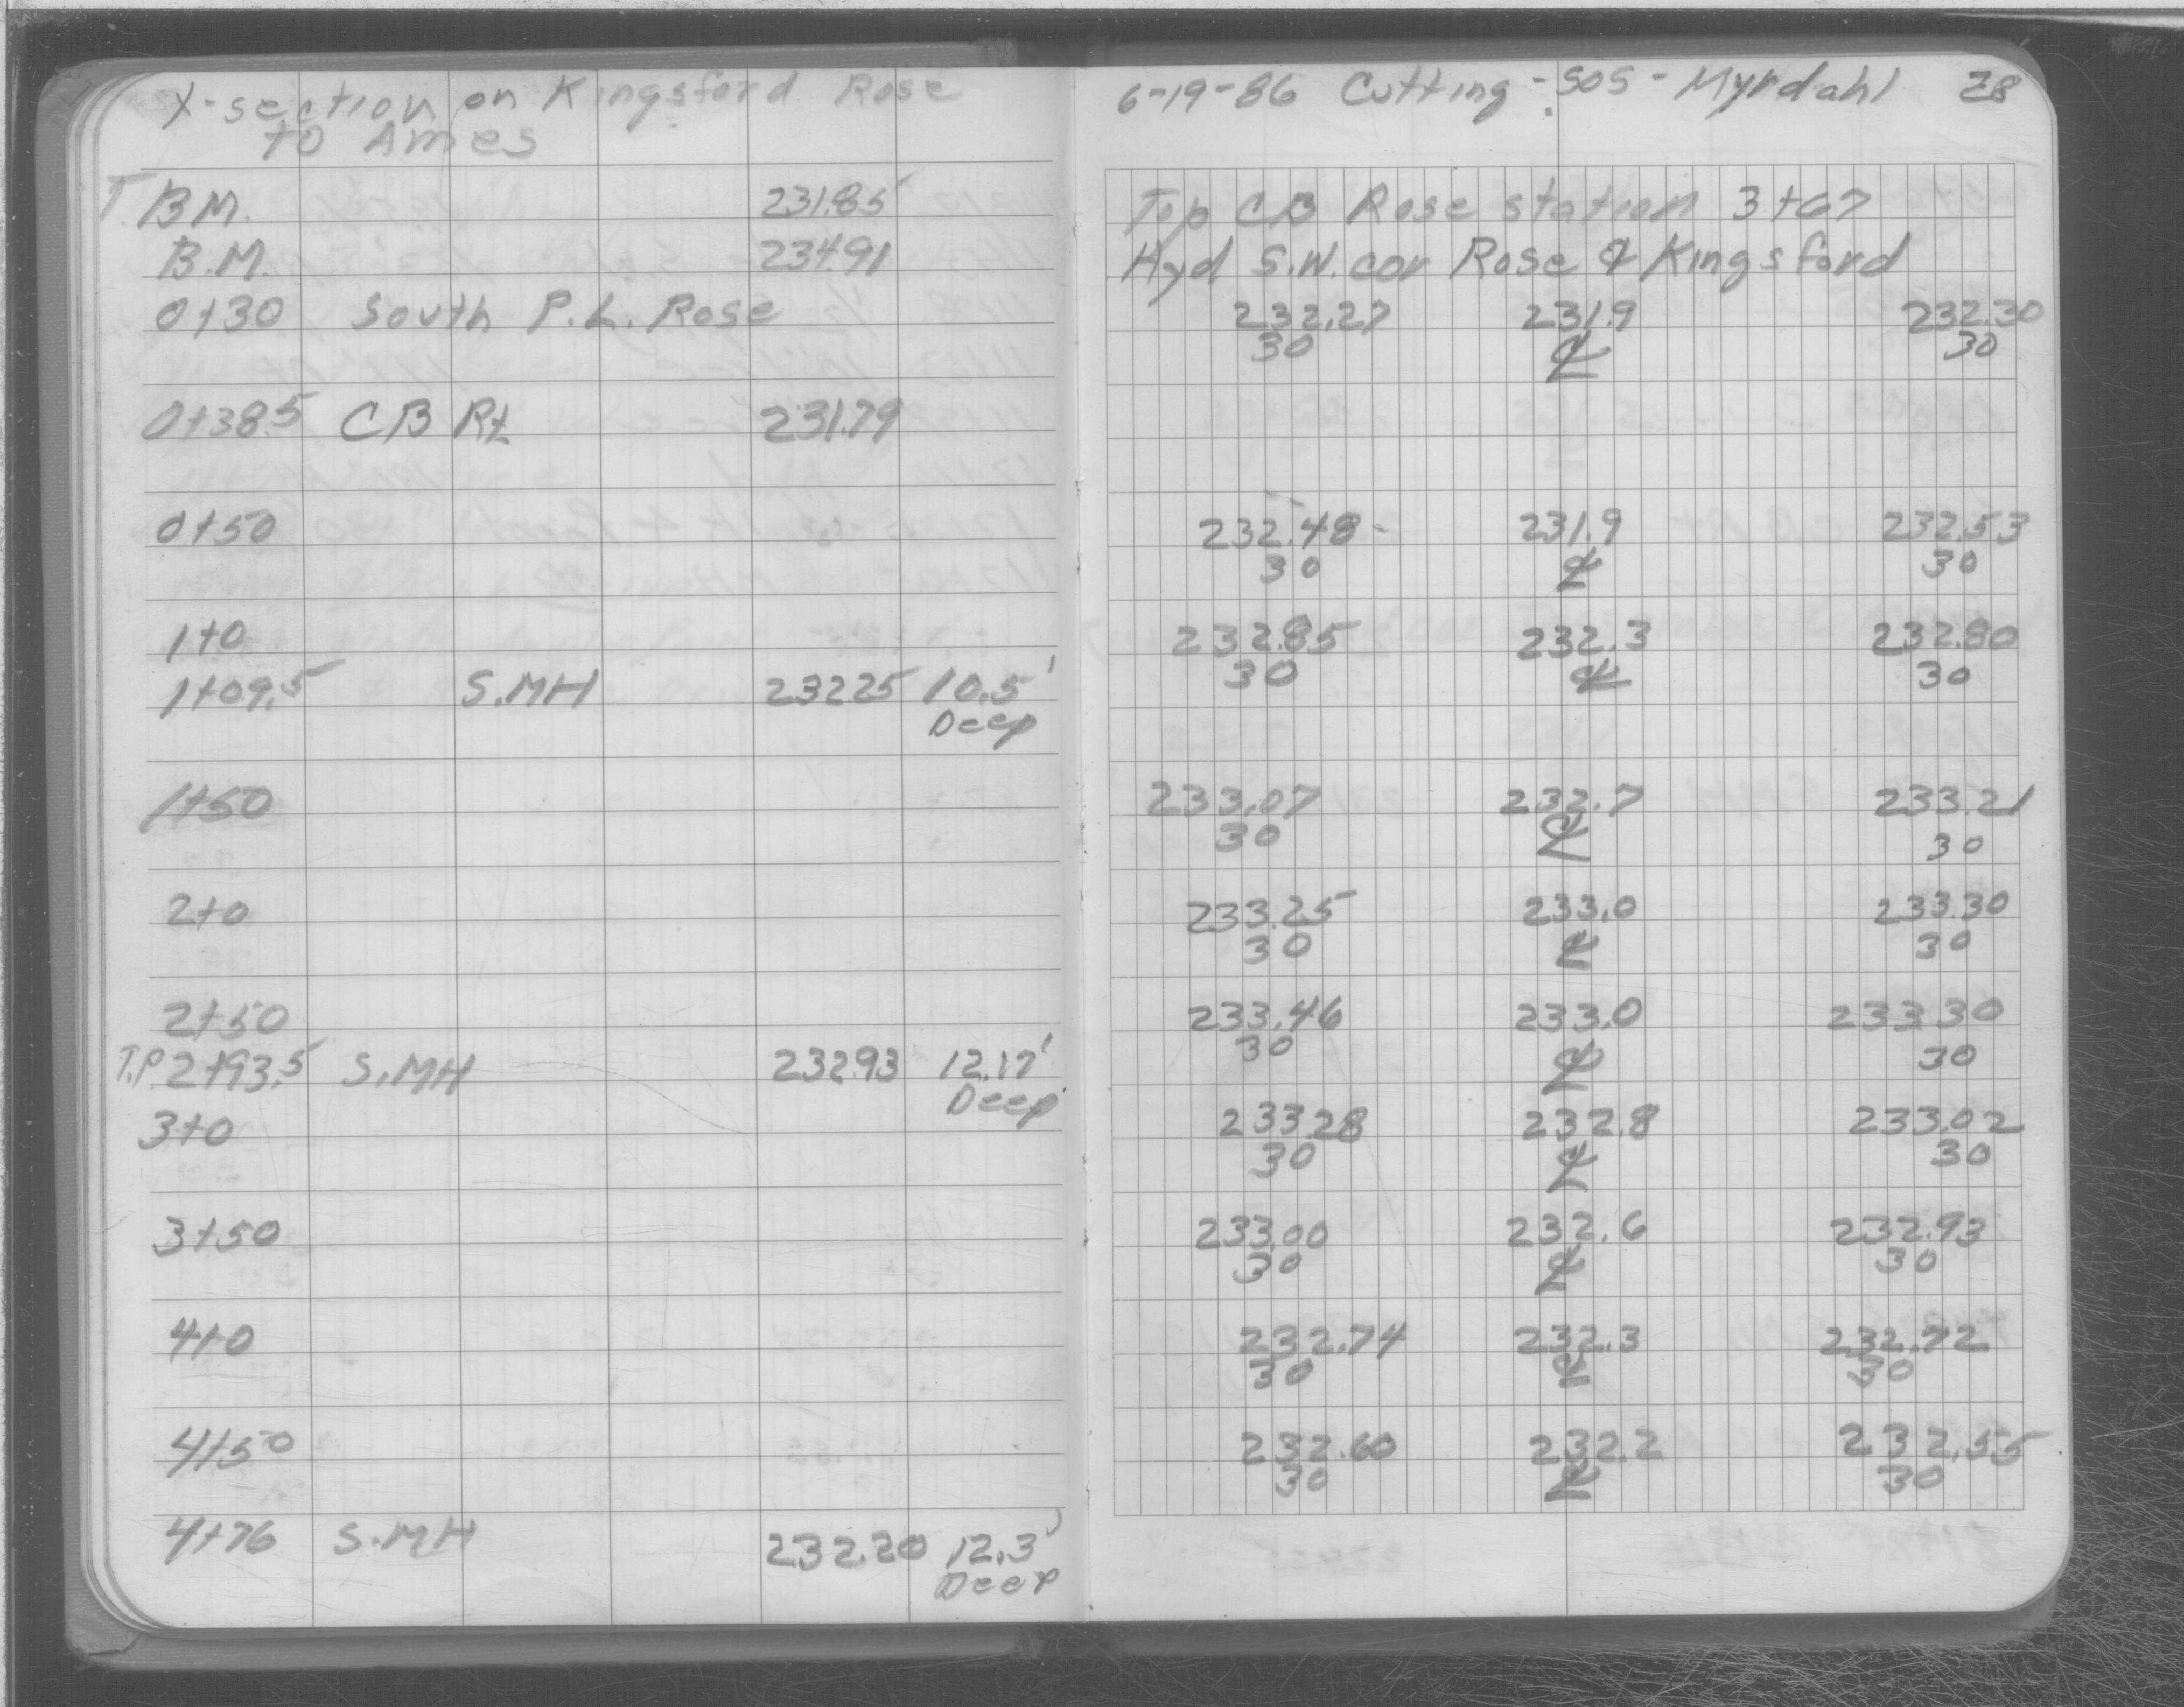 X-section on Kingsford Rose
to Ames
6-19-86 Cutting - SOS - Myrdahl 28
T B.M. 231.85 Top CB Rose station 3+67
B.M. 234.91 Hyd S.W. cor Rose & Kingsford
0+30 South P.L. Rose 232.27 231.9 232.30
30 ℄ 30
0+38.5 CB Rt 231.79
0+50 232.48 231.9 232.53
30 ℄ 30
1+0 232.85 232.3 232.80
30 ℄ 30
1+09.5 S.MH 232.25 10.5'
Deep
1+50 233.07 232.7 233.21
30 ℄ 30
2+0 233.25 233.0 233.30
30 ℄ 30
2+50 233.46 233.0 233.30
30 ℄ 30
T.P. 2+93.5 S.MH 232.93 12.17'
Deep
3+0 233.28 232.8 233.02
30 ℄ 30
3+50 233.00 232.6 232.93
30 ℄ 30
4+0 232.74 232.3 232.72
30 ℄ 30
4+50 232.60 232.2 232.55
30 ℄ 30
4+76 S.MH 232.20 12.3'
Deep